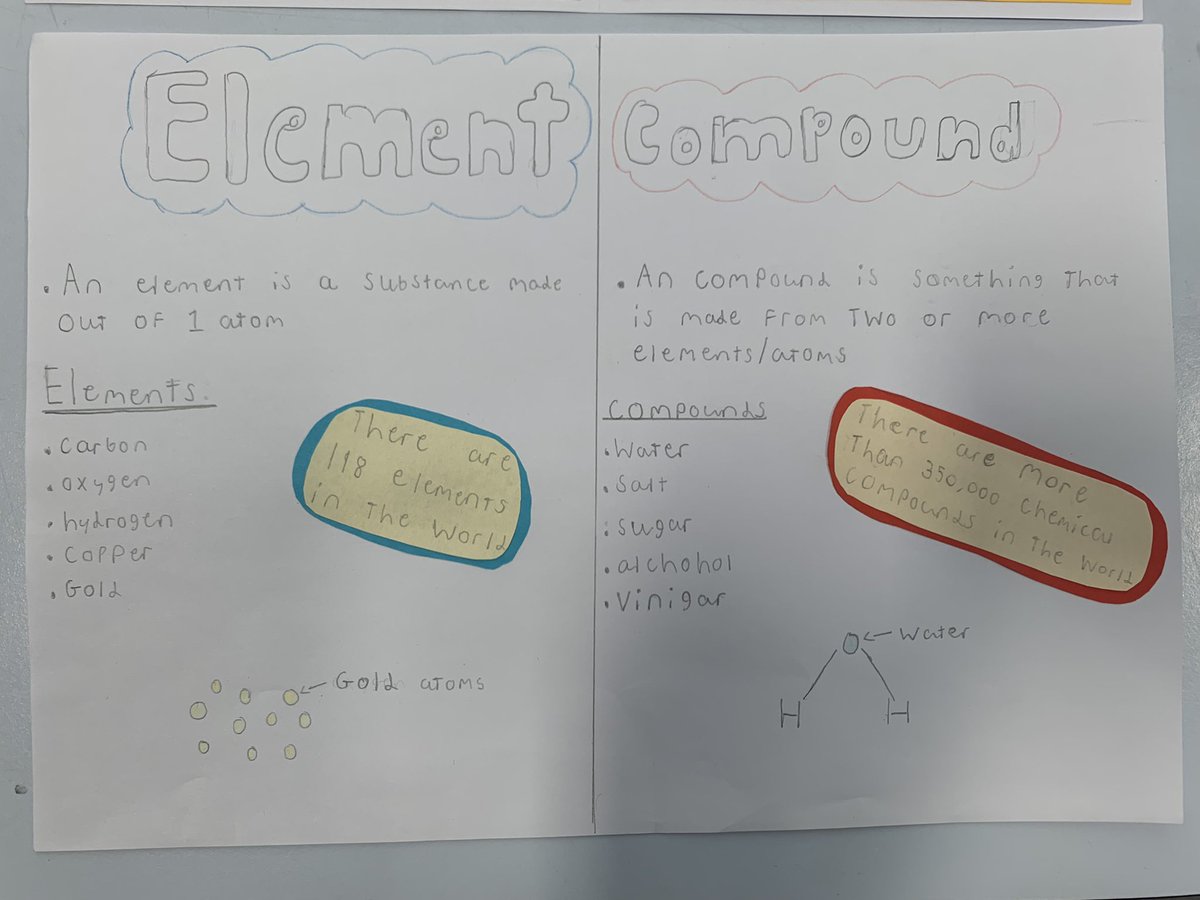 Element
. An element is a substance made
out of 1 atom
Elements.
. Carbon
. oxygen
. hydrogen
. Copper
. Gold
There are
118 elements
in the world
Gold atoms
Compound
. An compound is something that
is made from two or more
elements/atoms
Compounds
. Water
. Salt
. Sugar
. alchohol
. Vinigar
There are more
than 350,000 chemical
compounds in the world
O
Water
H H